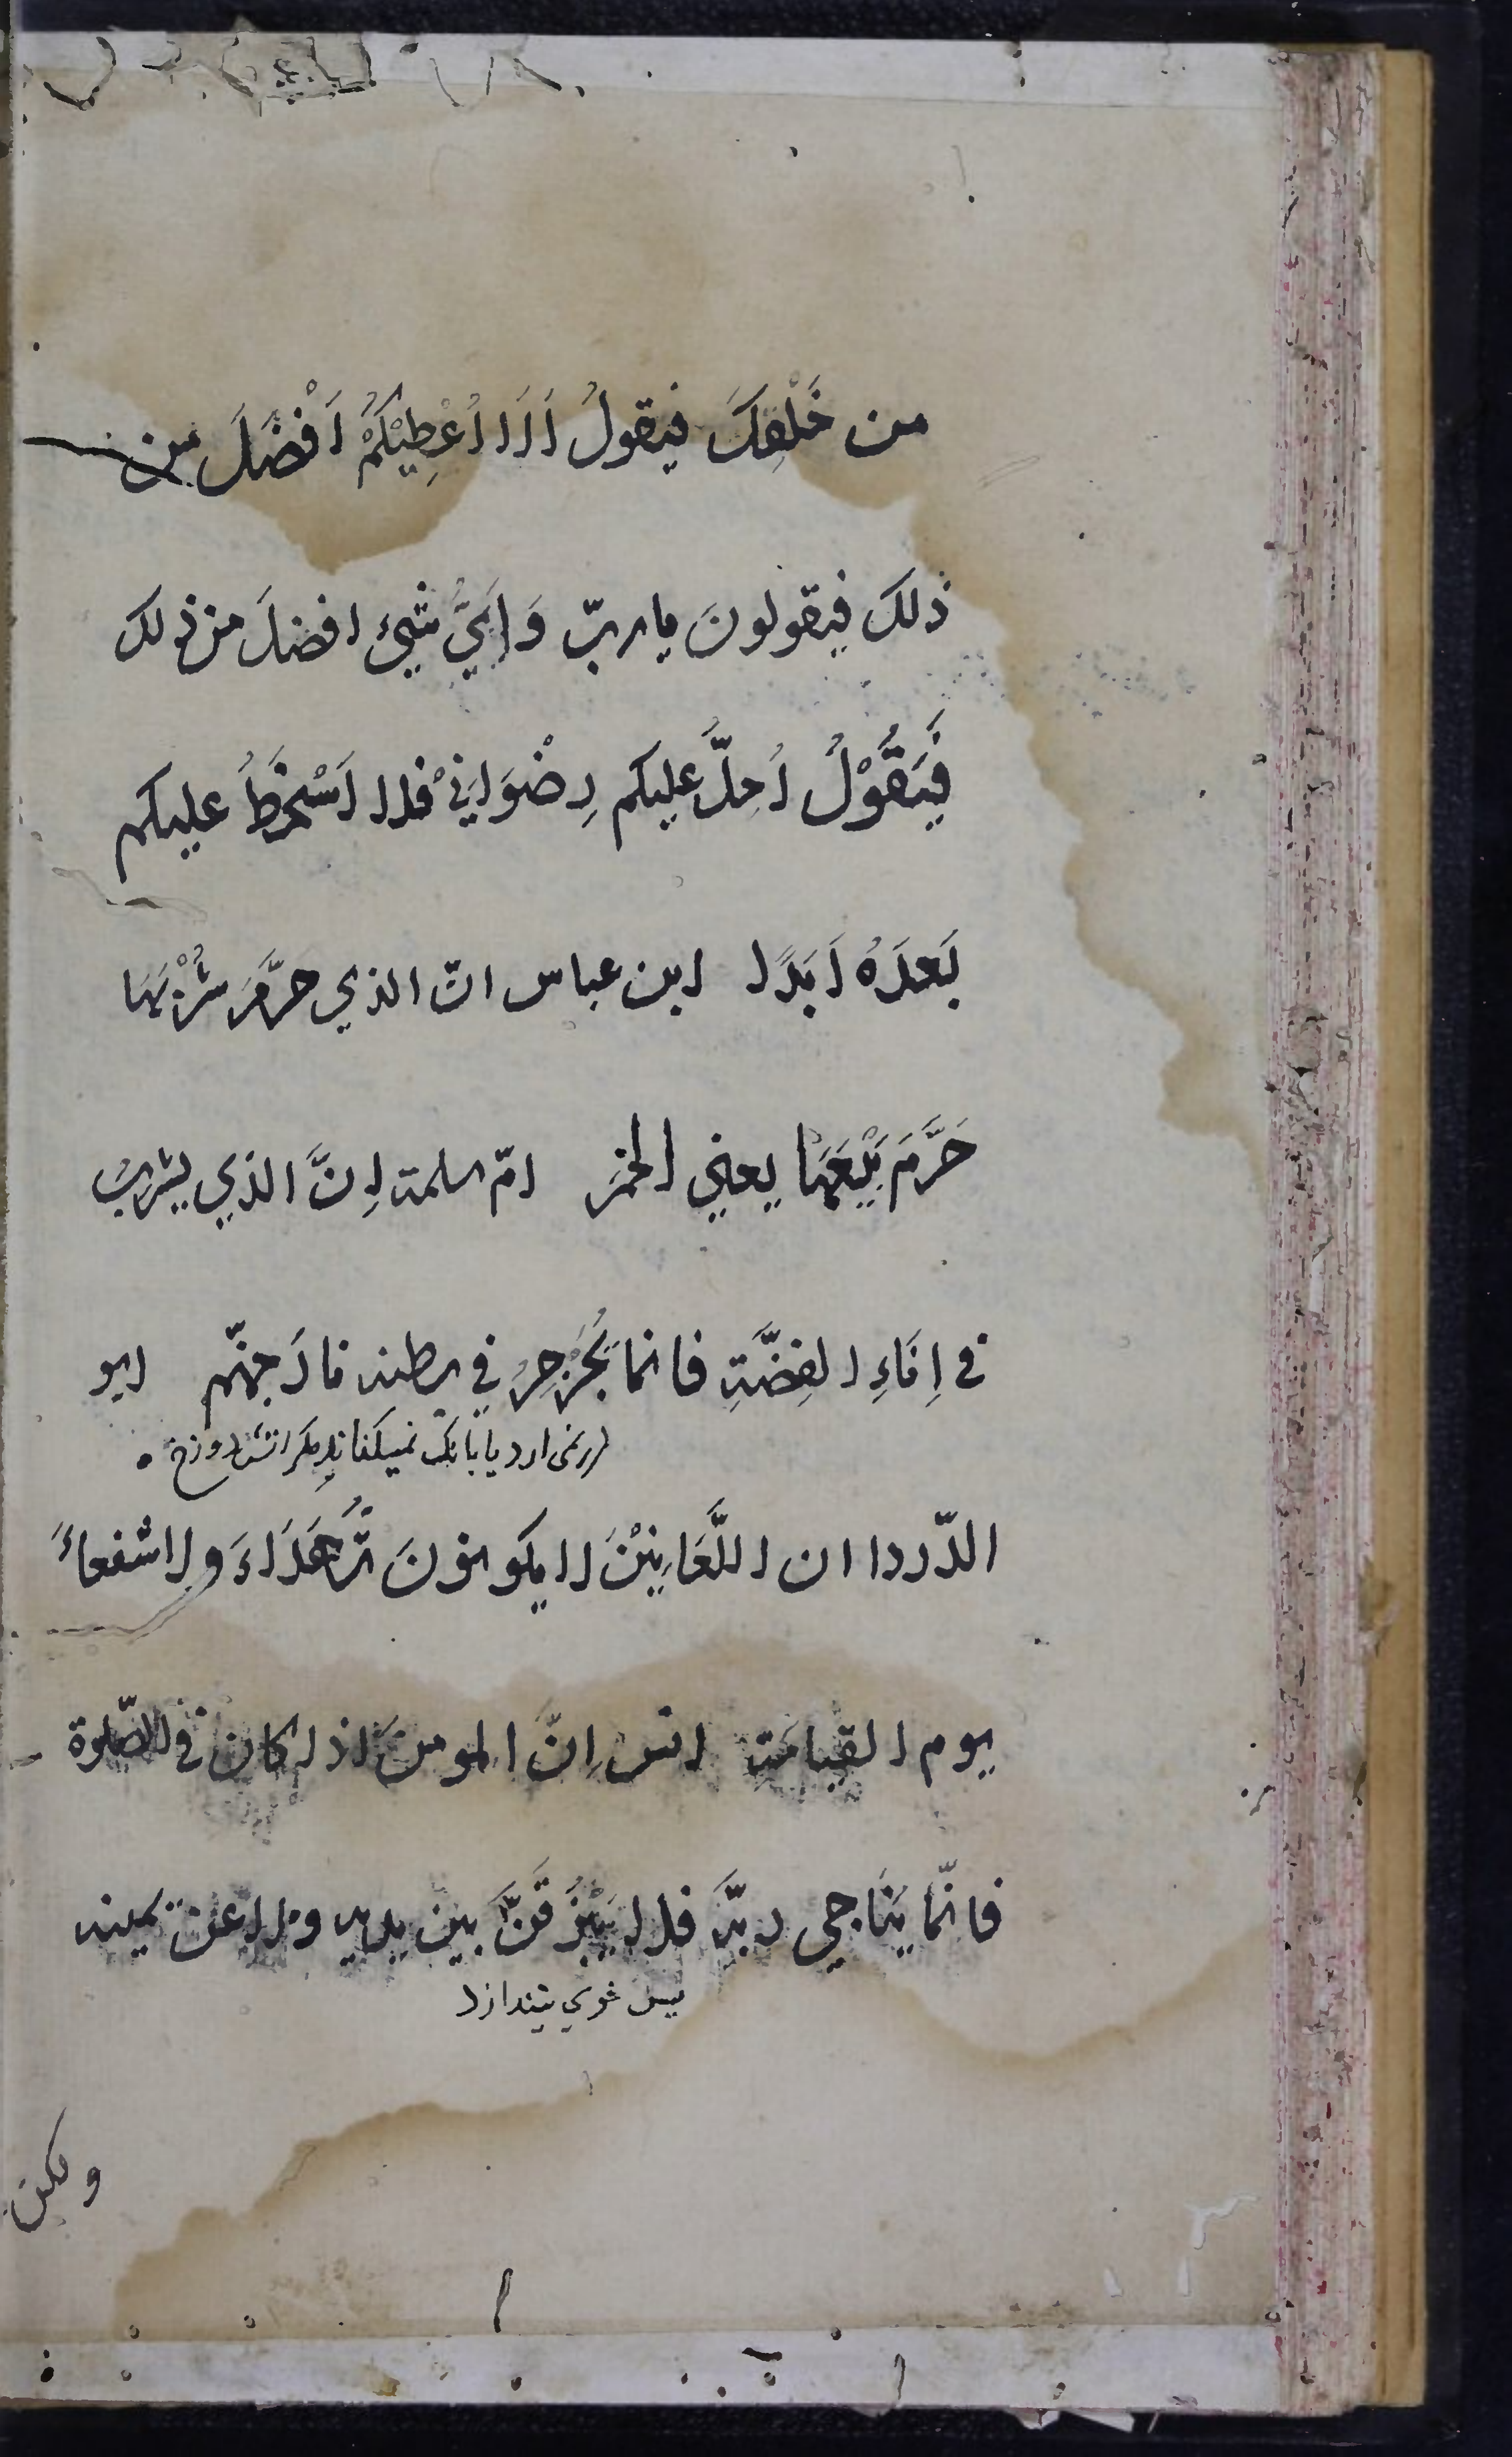 من خَلْقِكَ فيقولُ اَلَا اُعْطِيْكُمْ اَفْضَلَ من
ذلك فيقولونَ يا ربّ وَاَيُّ شيء افضلَ من ذلك
فَيَقُوْلُ اُحِلُّ عليكم رِضْوَانِيْ فلا اَسْخَطُ عليكم
بَعدَهُ اَبَدًا ابن عباس انّ الذي حرَّمَ شُرْبَهَا
حَرَّمَ بَيْعَهَا يعني الخمرَ امّ سلمة اِنَّ الذي يشربُ
في اِنَاءِ الفِضَّةِ فانما يُجَرْجِرُ في بطنه نارَ جهنّم ابو
الدّردا ان اللَّعَانِيْنَ لا يكونونَ شُهَدَاءَ ولا شفعاءَ
يوم القيامَة انس اِنّ المومنَ اذا كان في الصّلوة
فانّما يُنَاجي ربَّهُ فلا يَبْزُقَنَّ بين يديه ولا عن يمينه
پس خوي نيندازد
ولكن